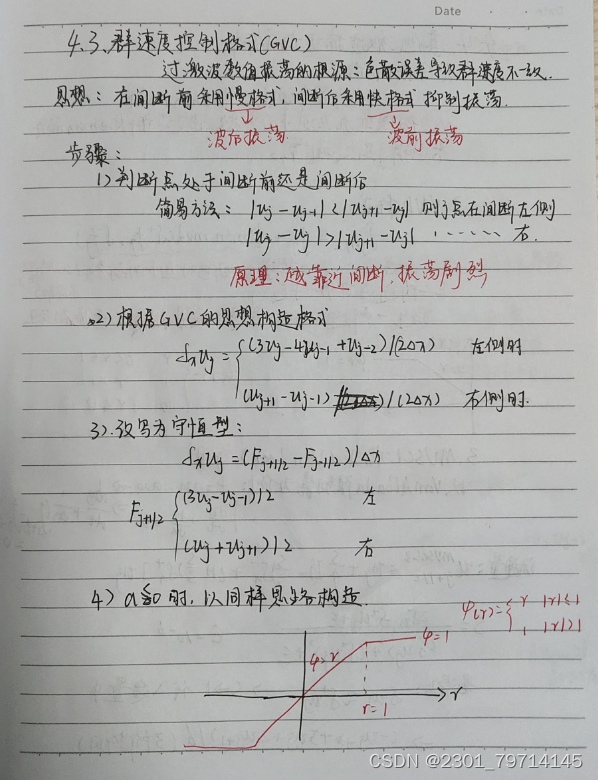 Date
4.3. 群速度控制格式(GVC)
过激波数值振荡的根源:色散误差导致群速度不一致.
思想: 在间断前采用慢格式, 间断后采用快格式 抑制振荡.
波后振荡 波前振荡
步骤:
1) 判断点处于间断前还是间断后
简易方法: |uj - uj-1| < |uj+1 - uj| 则j点在间断左侧
|uj - uj| > |uj+1 - uj| ...... 右.
原理: 越靠近间断, 振荡剧烈
2) 根据GVC的思想构造格式
δxuj = { (3uj-4uj-1+uj-2)/(2Δx) 左侧时
(uj+1-uj-1) /(2Δx) 右侧时.
3). 改写为守恒型:
δxuj = (Fj+1/2 - Fj-1/2)/Δx
Fj+1/2 { (3uj-uj-1)/2 左
(uj+uj+1)/2 右
4) a≤0时, 以同样思路构造.
φ(r)= { r |r|≤1
1 |r|>1
φ=r φ=1
r
r=1
CSDN @2301_79714145